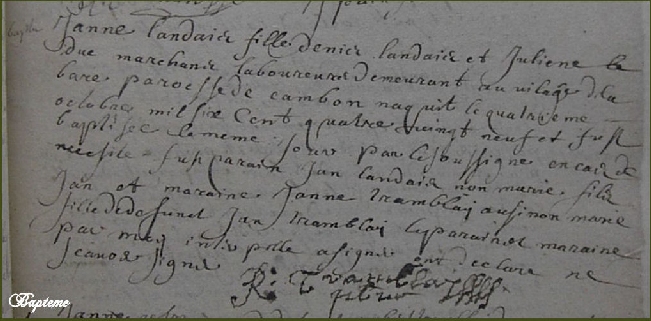 Janne landais fille denis landais et Juliene le
duc marchans laboureurs demourant au vilage d la
bare paroesse de cambon naquit le quatrieme
octobre mil six Cent quatre vingt neuf et fust
baptisee le meme jour par le soussigne en cas de
necesite fust parain Jan landais non marie fils
Jan et maraine Janne tramblaj ausi non marie
fille de defunct Jan tramblaj
par moy interpelle a signe ont declare ne
scavoir signe
Bapteme
Janne